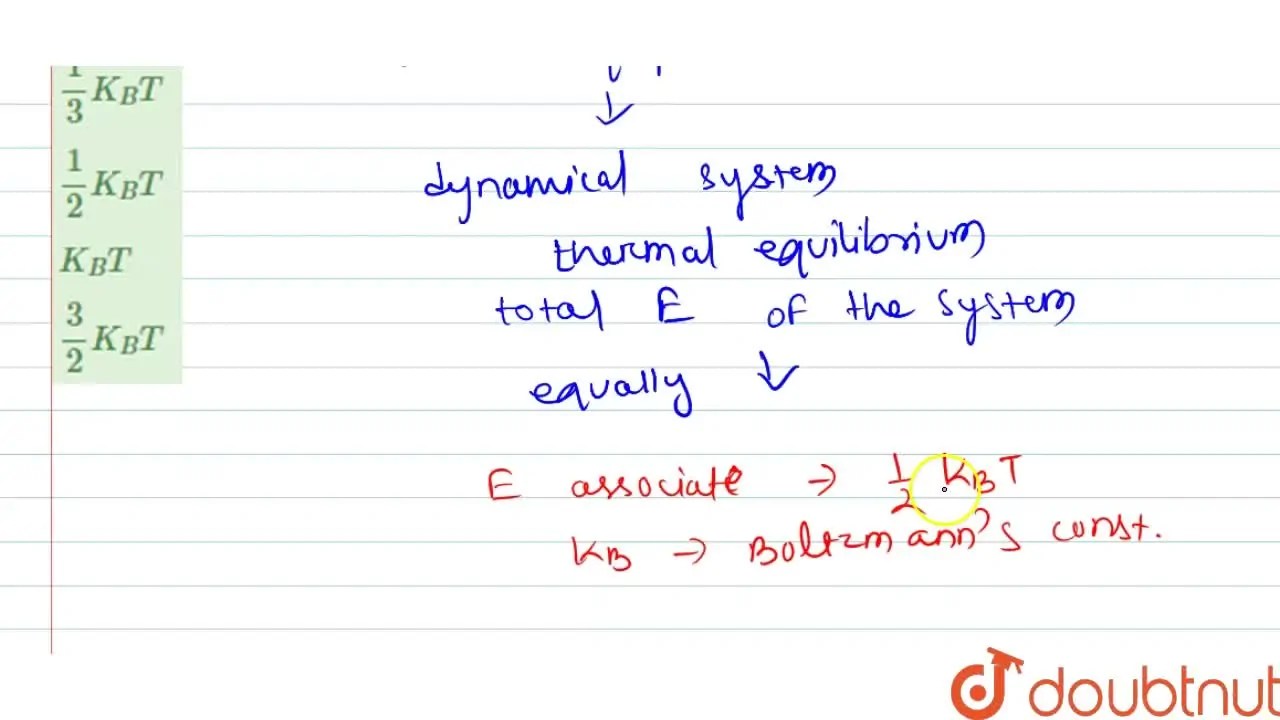 1/3 K_BT
1/2 K_BT
K_BT
3/2 K_BT
dynamical system
thermal equilibrium
total E of the system
equally
E associate → 1/2 K_BT
K_B → Boltzmann's const.
doubtnut